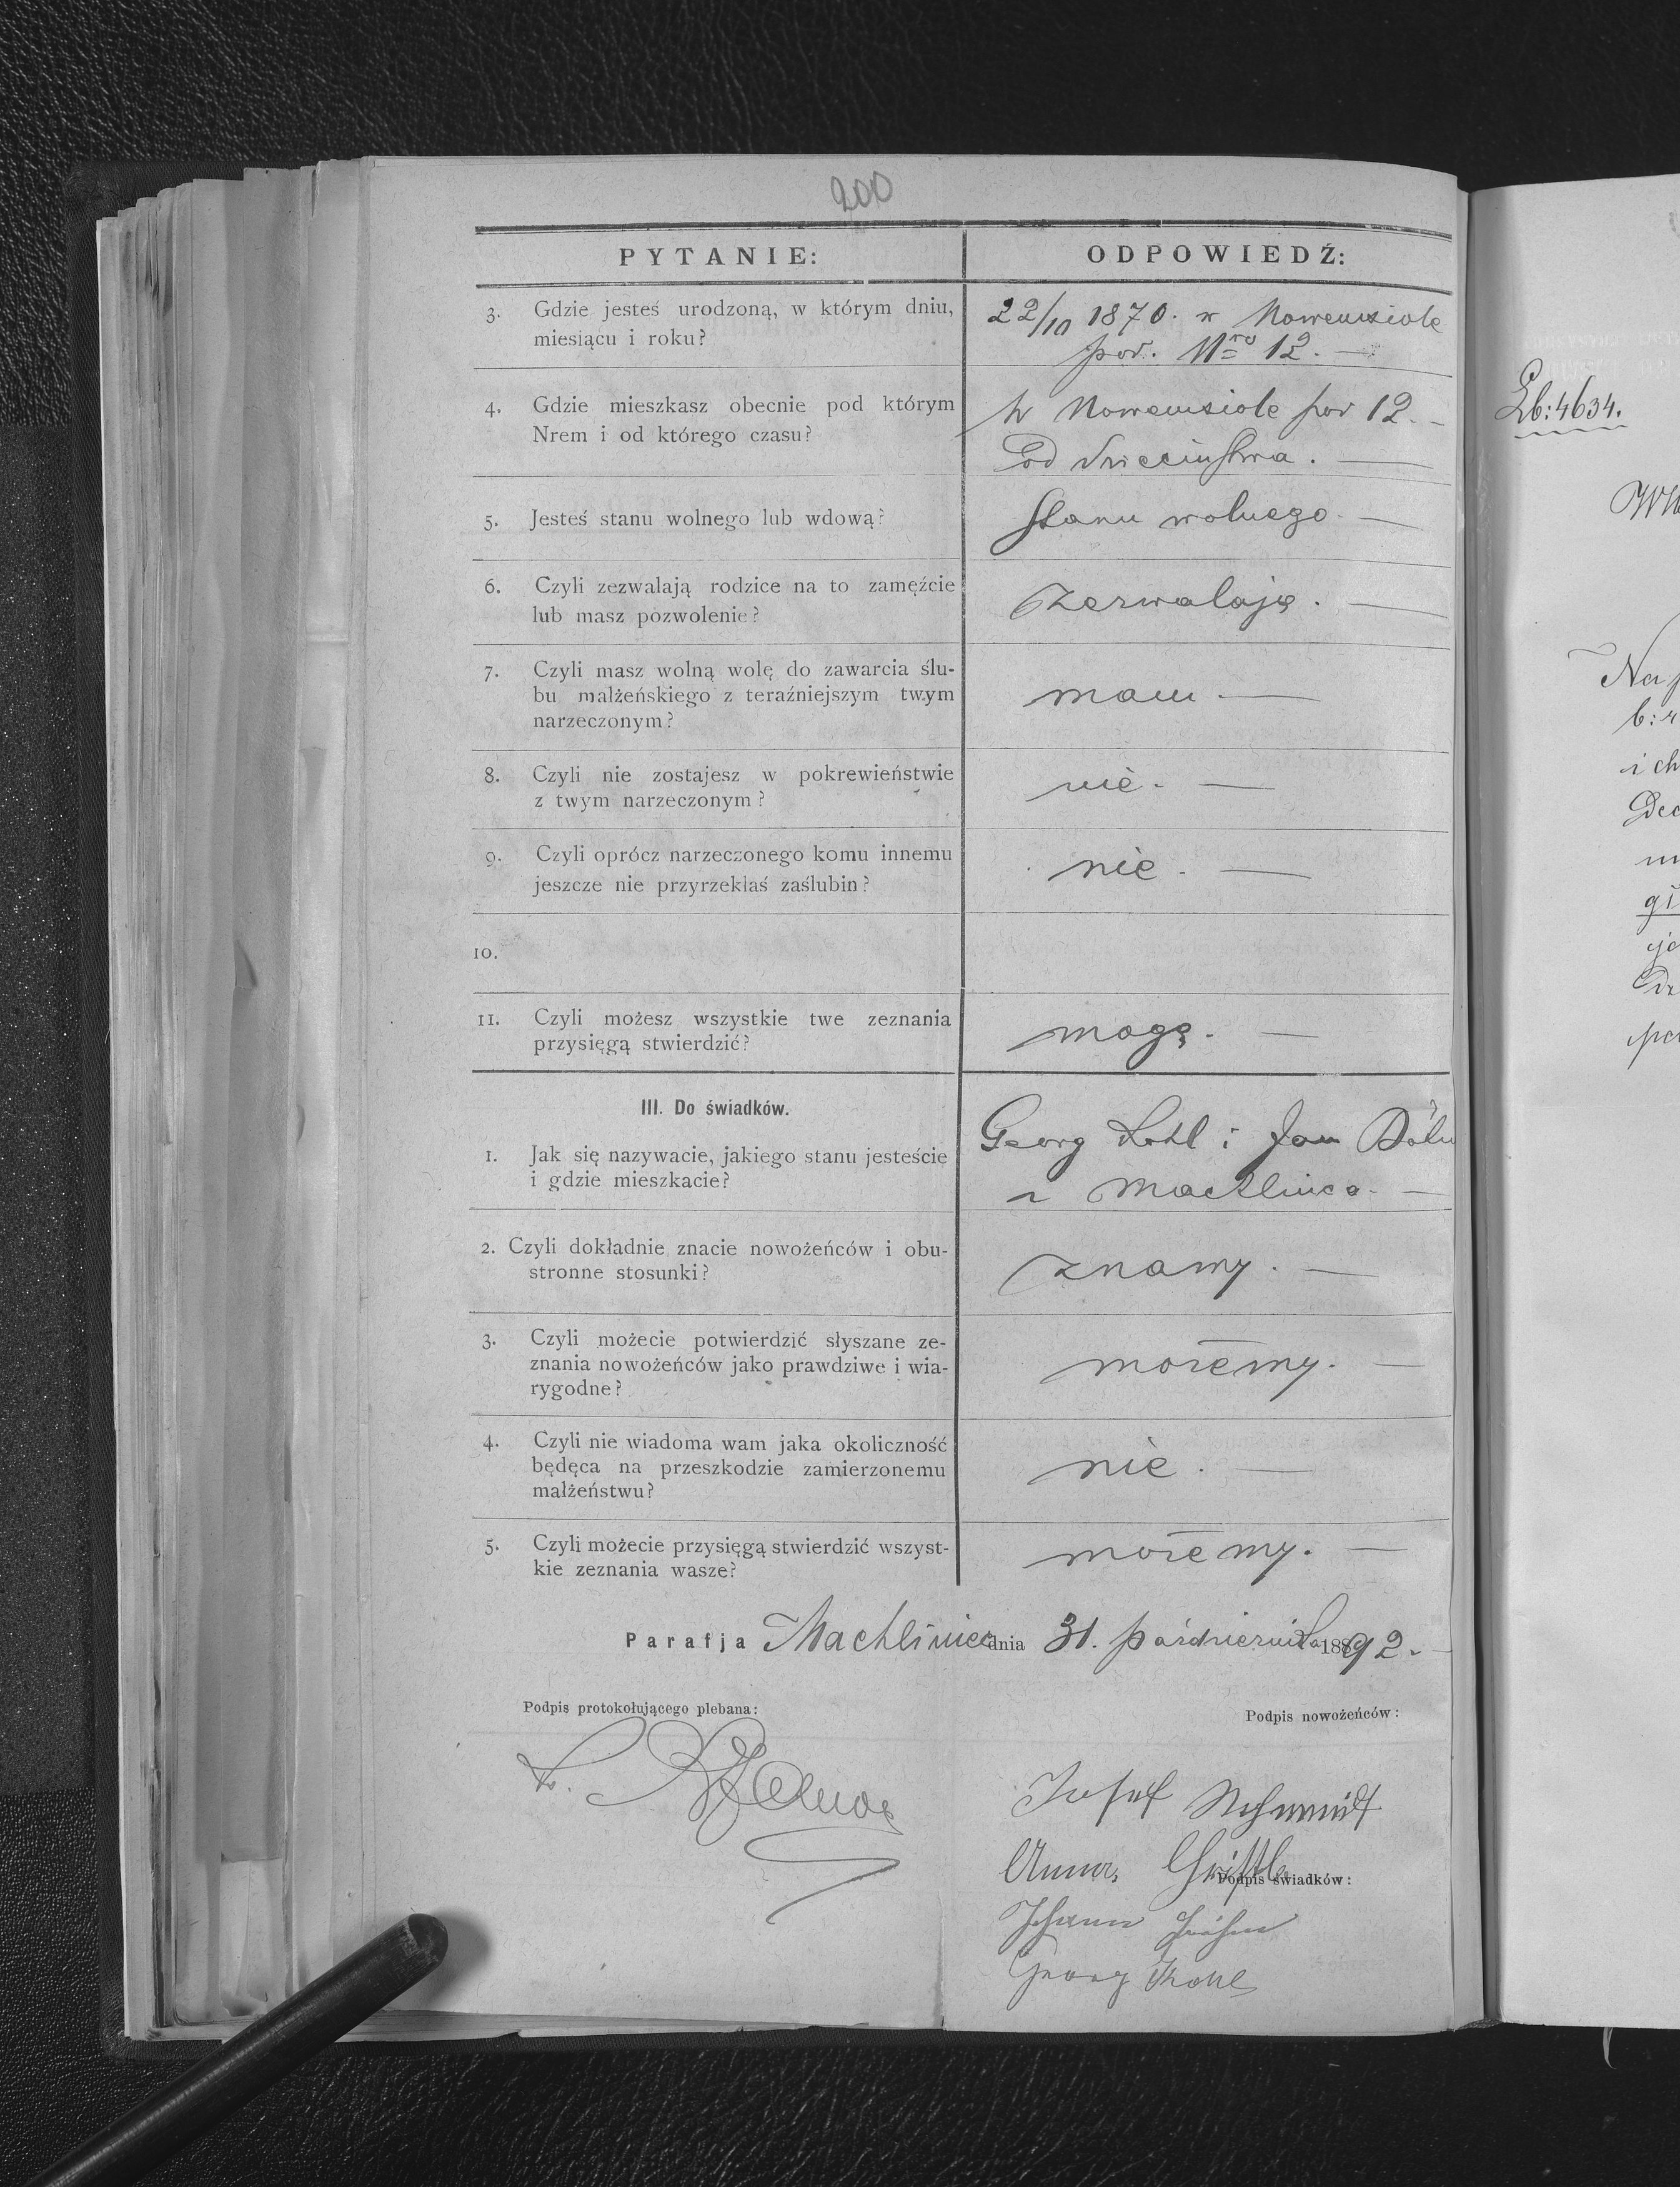 200
PYTANIE: ODPOWIEDŹ:
3. Gdzie jesteś urodzoną, w którym dniu,
miesiącu i roku?
22/10 1870. w Nowemsiole
pod. Nro 12. —
4. Gdzie mieszkasz obecnie pod którym
Nrem i od którego czasu?
W Nowemsiole pod 12. -
od dzieciństwa. —
5. Jesteś stanu wolnego lub wdową?
Stanu wolnego. —
6. Czyli zezwalają rodzice na to zamęźcie
lub masz pozwolenie?
zezwalają. —
7. Czyli masz wolną wolę do zawarcia ślu-
bu małżeńskiego z teraźniejszym twym
narzeczonym?
mam —
8. Czyli nie zostajesz w pokrewieństwie
z twym narzeczonym?
nie. —
9. Czyli oprócz narzeczonego komu innemu
jeszcze nie przyrzekłaś zaślubin?
nie. —
10.
11. Czyli możesz wszystkie twe zeznania
przysięgą stwierdzić?
mogę. —
III. Do świadków.
1. Jak się nazywacie, jakiego stanu jesteście
i gdzie mieszkacie?
Georg Kohl i Jan
z Machliniec. —
2. Czyli dokładnie znacie nowożeńców i obu-
stronne stosunki?
znamy. —
3. Czyli możecie potwierdzić słyszane ze-
znania nowożeńców jako prawdziwe i wia-
rygodne?
możemy. —
4. Czyli nie wiadoma wam jaka okoliczność
będęca na przeszkodzie zamierzonemu
małżeństwu?
nie. —
5. Czyli możecie przysięgą stwierdzić wszyst-
kie zeznania wasze?
możemy. —
Parafja Machliniec dnia 31. października 18892. -
Podpis protokołującego plebana:
Podpis nowożeńców:
Josef Schmidt
Anna
Podpis świadków:
Johann
Georg Kohl
Lb: 4634.
Na p
b: r
i ch